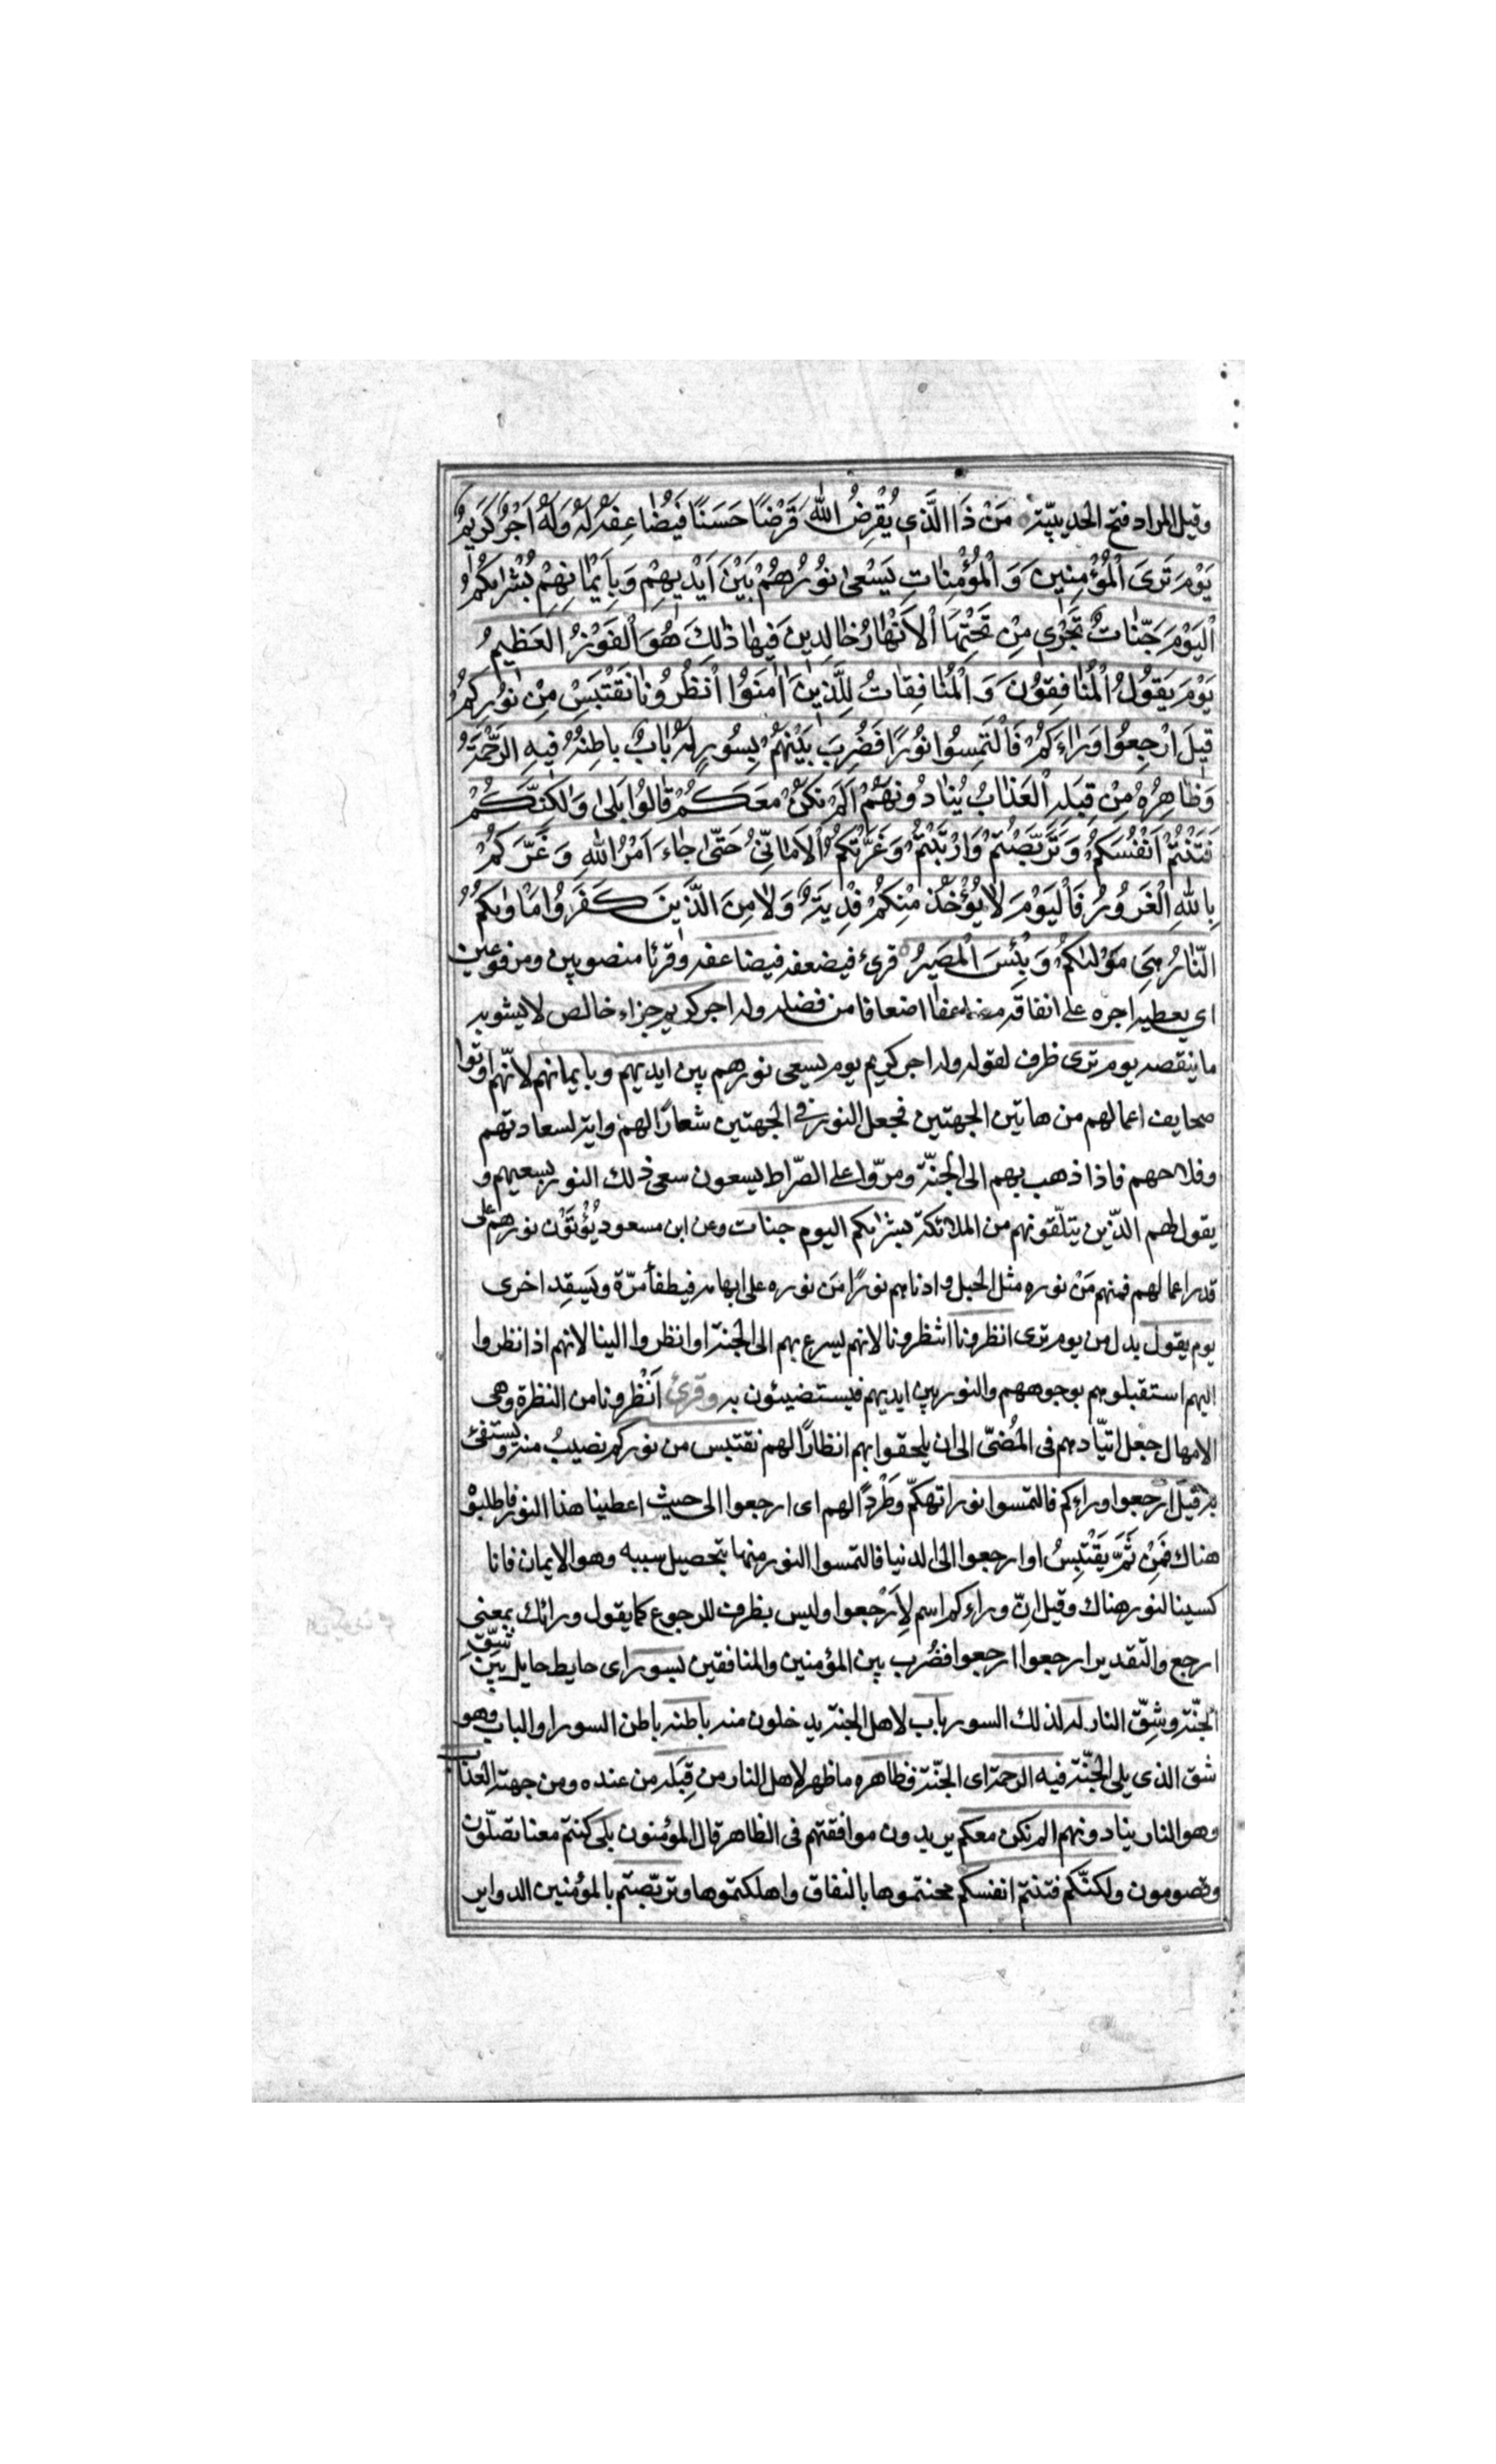 وقيل المراد فتح الحديبيّة مَنْ ذَا الَّذي يُقْرِضُ اللّٰهَ قَرْضًا حَسَنًا فَيُضٰاعِفَهُ لَهُ وَلَهُ اَجْرٌ كَرِيمٌ
يَوْمَ تَرَى الْمُؤْمِنِينَ وَ الْمُؤْمِنٰاتِ يَسْعٰى نُورُهُمْ بَيْنَ اَيْدِيهِمْ وَبِاَيْمٰانِهِمْ بُشْرٰيكُمُ
الْيَوْمَ جَنّٰاتٌ تَجْرِي مِنْ تَحْتِهَا الْاَنْهٰارُ خٰالِدِينَ فِيهٰا ذٰلِكَ هُوَ الْفَوْزُ الْعَظِيمُ
يَوْمَ يَقُولُ الْمُنٰافِقُونَ وَ الْمُنٰافِقٰاتُ لِلَّذِينَ اٰمَنُوا انْظُرُونٰا نَقْتَبِسْ مِنْ نُورِكُمْ
قِيلَ ارْجِعُوا وَرٰاءَكُمْ فَالْتَمِسُوا نُورًا فَضُرِبَ بَيْنَهُمْ بِسُورٍ لَهُ بٰابٌ بٰاطِنُهُ فِيهِ الرَّحْمَةُ
وَظٰاهِرُهُ مِنْ قِبَلِهِ الْعَذٰابُ يُنٰادُونَهُمْ اَلَمْ نَكُنْ مَعَكُمْ قٰالُوا بَلٰى وَلٰكِنَّكُمْ
فَتَنْتُمْ اَنْفُسَكُمْ وَتَرَبَّصْتُمْ وَارْتَبْتُمْ وَغَرَّتْكُمُ الْاَمٰانِيُّ حَتّٰى جٰاءَ اَمْرُ اللّٰهِ وَغَرَّكُمْ
بِاللّٰهِ الْغَرُورُ فَالْيَوْمَ لٰا يُؤْخَذُ مِنْكُمْ فِدْيَةٌ وَلٰا مِنَ الَّذِينَ كَفَرُوا مَأْوٰيكُمُ
النّٰارُ هِيَ مَوْلٰيكُمْ وَبِئْسَ الْمَصِيرُ قرئ فيضعفه فيضاعفه وقرئا منصوبين ومرفوعين
اي يعطيه اجره على انفاقه اضعافا من فضله وله اجر كريم جزاء خالص لا يشوبه
ما ينقصه يوم ترى ظرف لقوله وله اجر كريم يوم يسعى نورهم بين ايديهم وبايمانهم لانّهم اوتوا
صحايف اعمالهم من هاتين الجهتين فجعل النور في الجهتين شعارًا لهم واية لسعادتهم
وفلاحهم فاذا ذهب بهم الى الجنّة ومرّوا على الصّراط يسعون سعى ذلك النور بسعيهم و
يقول لهم الذين يتلّقونهم من الملائكة بشرٰيكم اليوم جنات وعن ابن مسعود يُؤْتَوْن نورهم على
قدر اعمالهم فمنهم مَنْ نوره مثل الجبل وادناهم نورًا مَن نوره على ابهامه فيطفأ مرّة ويَسقِد اخرى
يوم يقول بدل من يوم ترى انظرونا انتظرونا لانهم يسرع بهم الى الجنة او انظروا الينا لانهم اذا نظروا
اليهم استقبلوهم بوجوههم والنور بين ايديهم فيستضيئون به وقرئ اَنْظِرونا من النظرة وهى
الامهال جعل اتيّادهم فى المُضىّ الى ان يلحقوا بهم انظارًا لهم نقتبس من نوركم نصيبُ منه ويستفئ
به قيل ارجعوا وراءكم فالتمسوا نورا تهكّم وطَرْدًا لهم اى ارجعوا الى حيث اعطينا هذا النور فاطلبوْ
هناك فَمِنْ ثَمَّ يَقْتَبِسُ او ارجعوا الى الدنيا فالتمسوا النور منها بتحصيل سببه وهو الايمان فانا
كسبنا النور هناك وقيل انّ وراءكم اسم لِاَرْجعوا وليس بظرف للرجوع كما يقول ورائك بمعنى
ارجع والتقدير ارجعوا ارجعوا فضُرب بين المؤمنين والمنافقين بسور اى حايط حايل بين شقّ
الجنّة وشِقّ النار له لذلك السور باب لاهل الجنة يدخلون منه باطنه باطن السور او الباب وهو
شق الذى يلى الجنّة فيه الرحمة اى الجنّة فظاهره ما ظهر لاهل النار من قِبَله من عنده ومن جهته العذاب
وهو النار ينادونهم الم نكن معكم يريدون موافقتهم فى الظاهر قال المؤمنون بلى كنتم معنا تصلّون
وتصومون ولكنّكم فتنتم انفسكم محنتموها بالنفاق واهلكتموها وتربّصتم بالمؤمنين الدواير